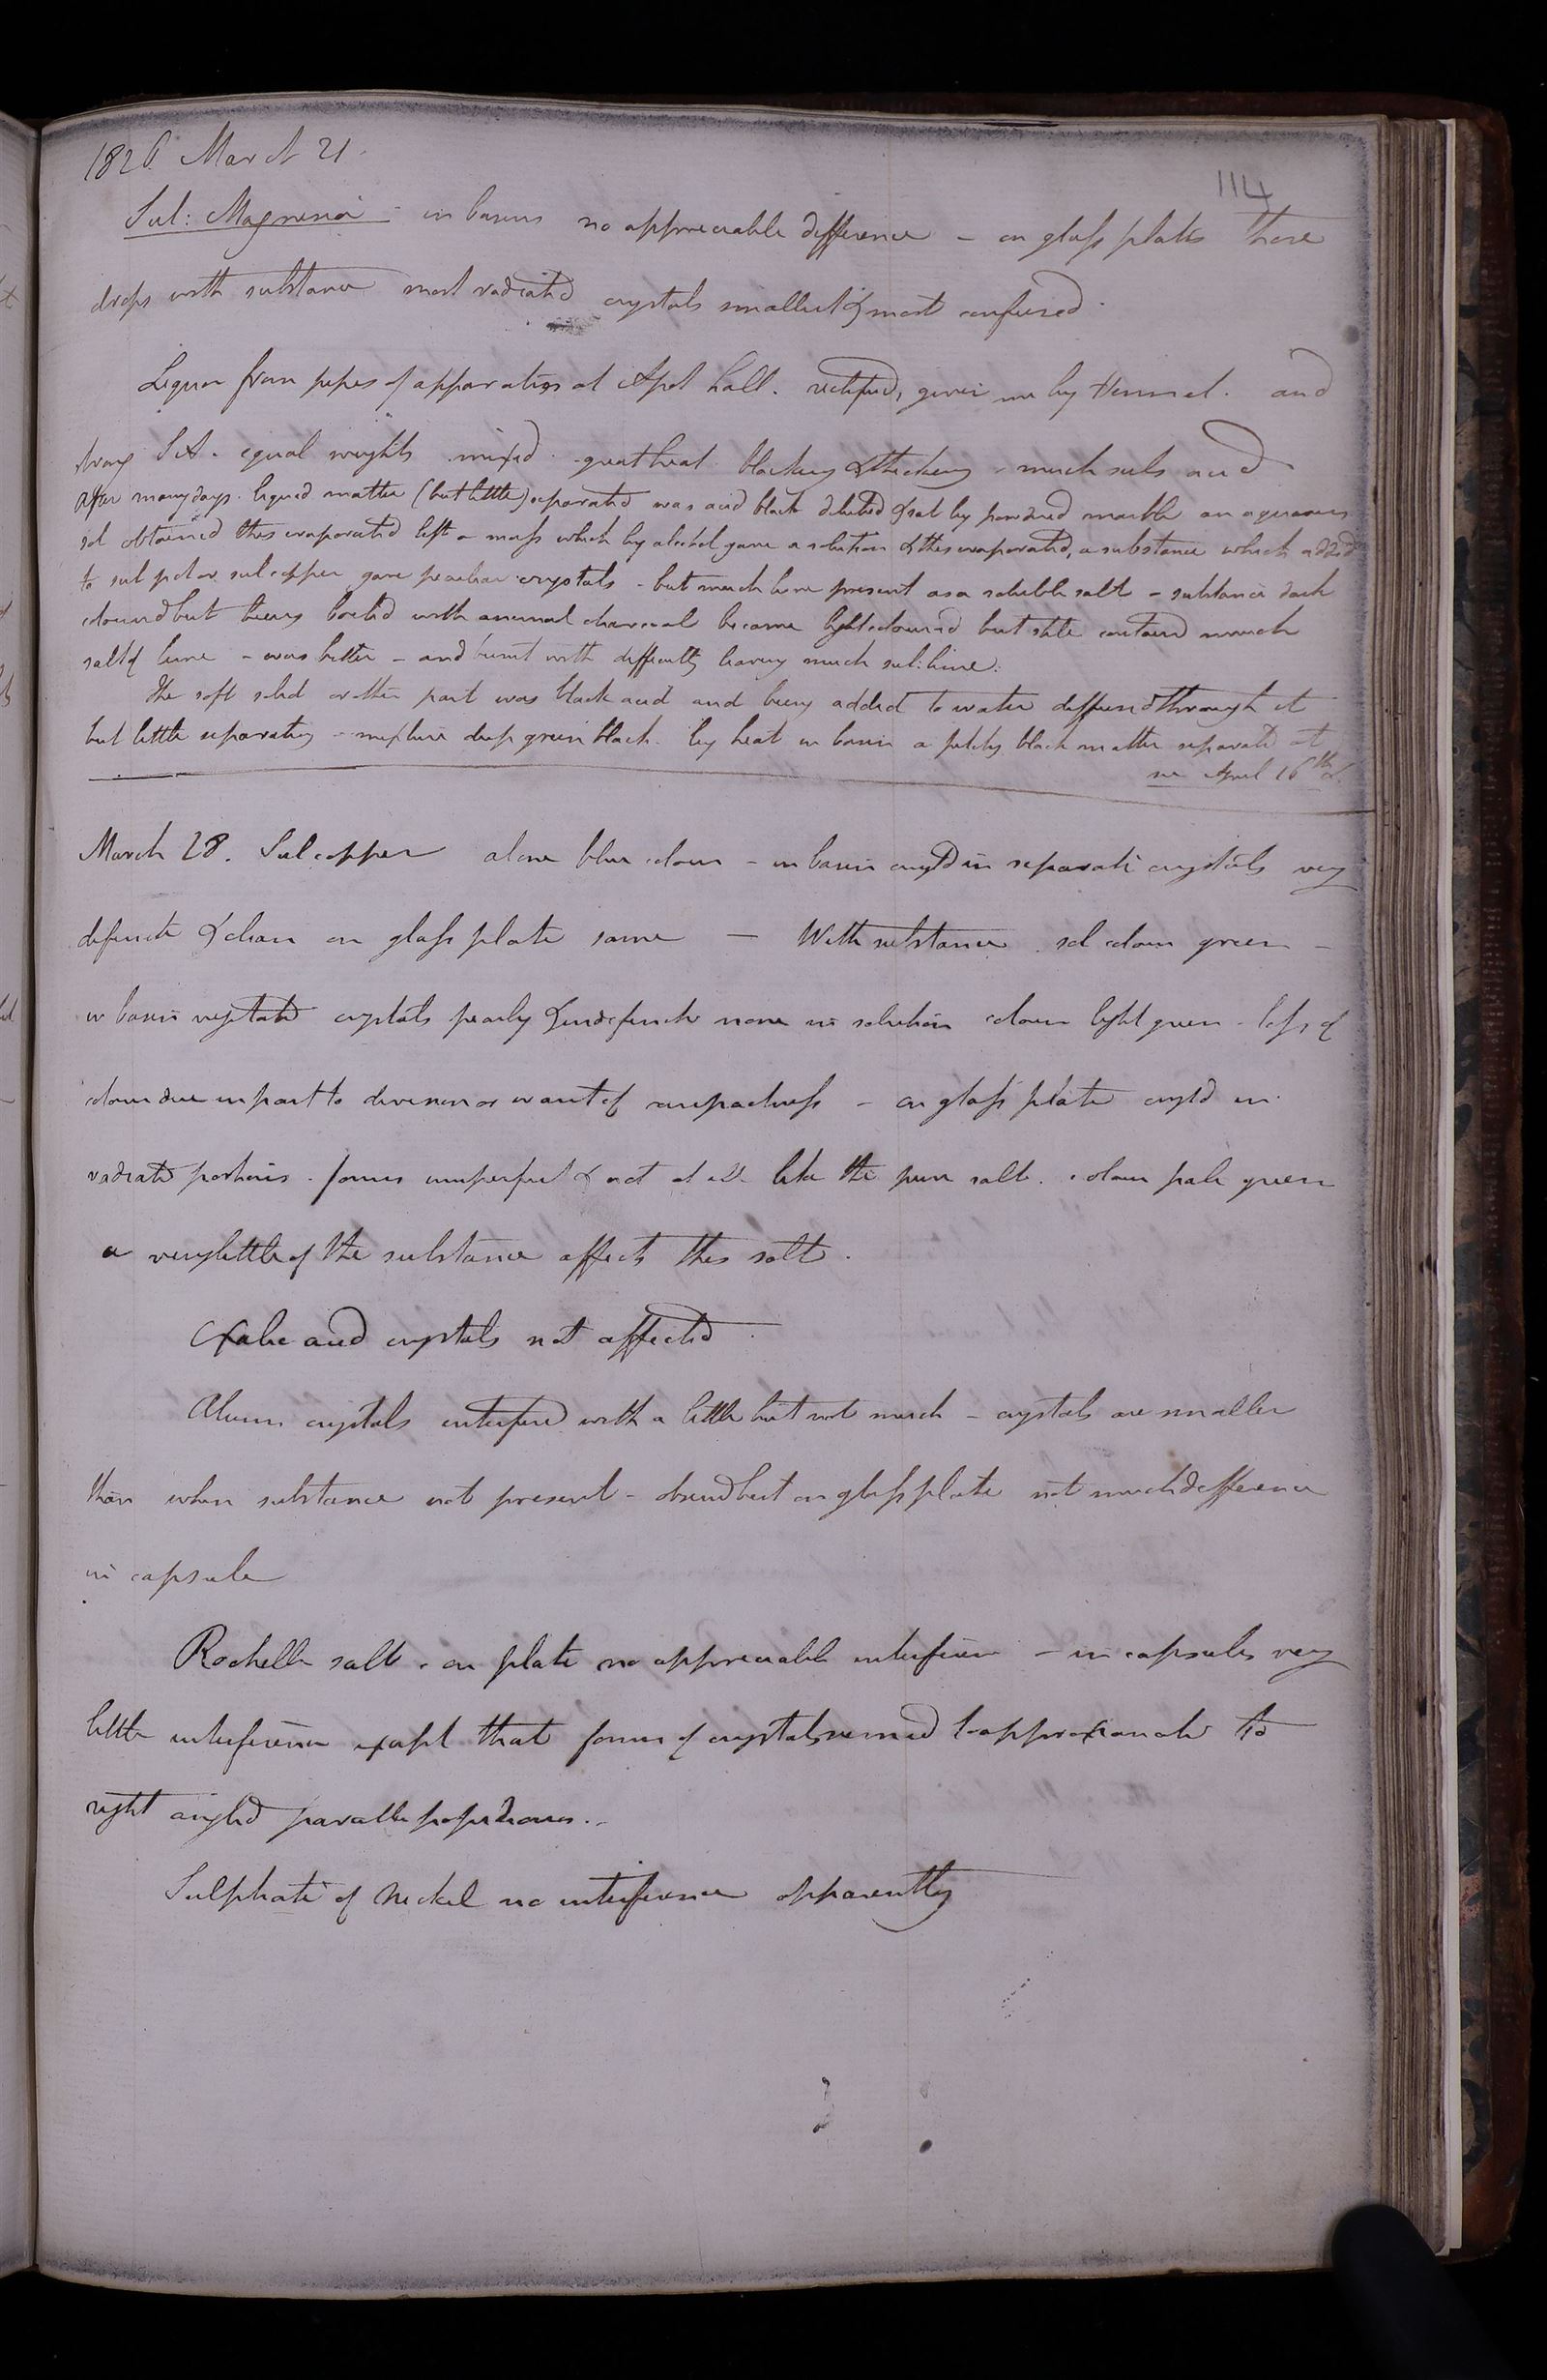 1826 March 21.
114
Sul: Magnesia - in basins no appreciable difference - on glass plates those
drops with substance most radiated crystals smallest & most confused.
Liquor from pipes of apparatus at Apot hall. rectified, given me by Hennel. and
strong S A. equal weights mixed. great heat blacking & thickening - much sul acid
After many days. liquid matter (but little) separated was acid black diluted & sat by powdered marble an aqueous
sol obtained this evaporated left a mass which by alcohol gave a solution & this evaporated, a substance which added
to sul pot or sul copper gave peculiar crystals - but much lime present as a soluble salt - substance dark
coloured but being boiled with animal charcoal became light coloured but still contained much
salt of lime - was bitter - and burnt with difficulty leaving much sul: lime.
The soft solid or other part was black acid and being added to water diffused through it
but little separating - mixture deep green black. by heat in basin a pitchy black matter separated at
see April 16th &.
March 28. Sul copper alone blue colour - in basin crystd in separate crystals very
definite & clear on glass plate same - With substance sol colour green -
in basin vegetated crystals pearly & indefinite none in solution colour light green - loss of
colour due in part to division or want of compactness - on glass plate crystd in
radiated portions. forms imperfect & not at all like the pure salt. colour pale green
a very little of the substance affects this salt.
Oxalic acid crystals not affected.
Alum crystals interfered with a little but not much - crystals are smaller
than when substance not present - observed best on glass plate not much difference
in capsule
Rochelle salt. on plate no appreciable interference - in capsules very
little interference except that forms of crystals seemed to approximate to
right angled parallelopipedons.
Sulphate of Nickel no interference apparently